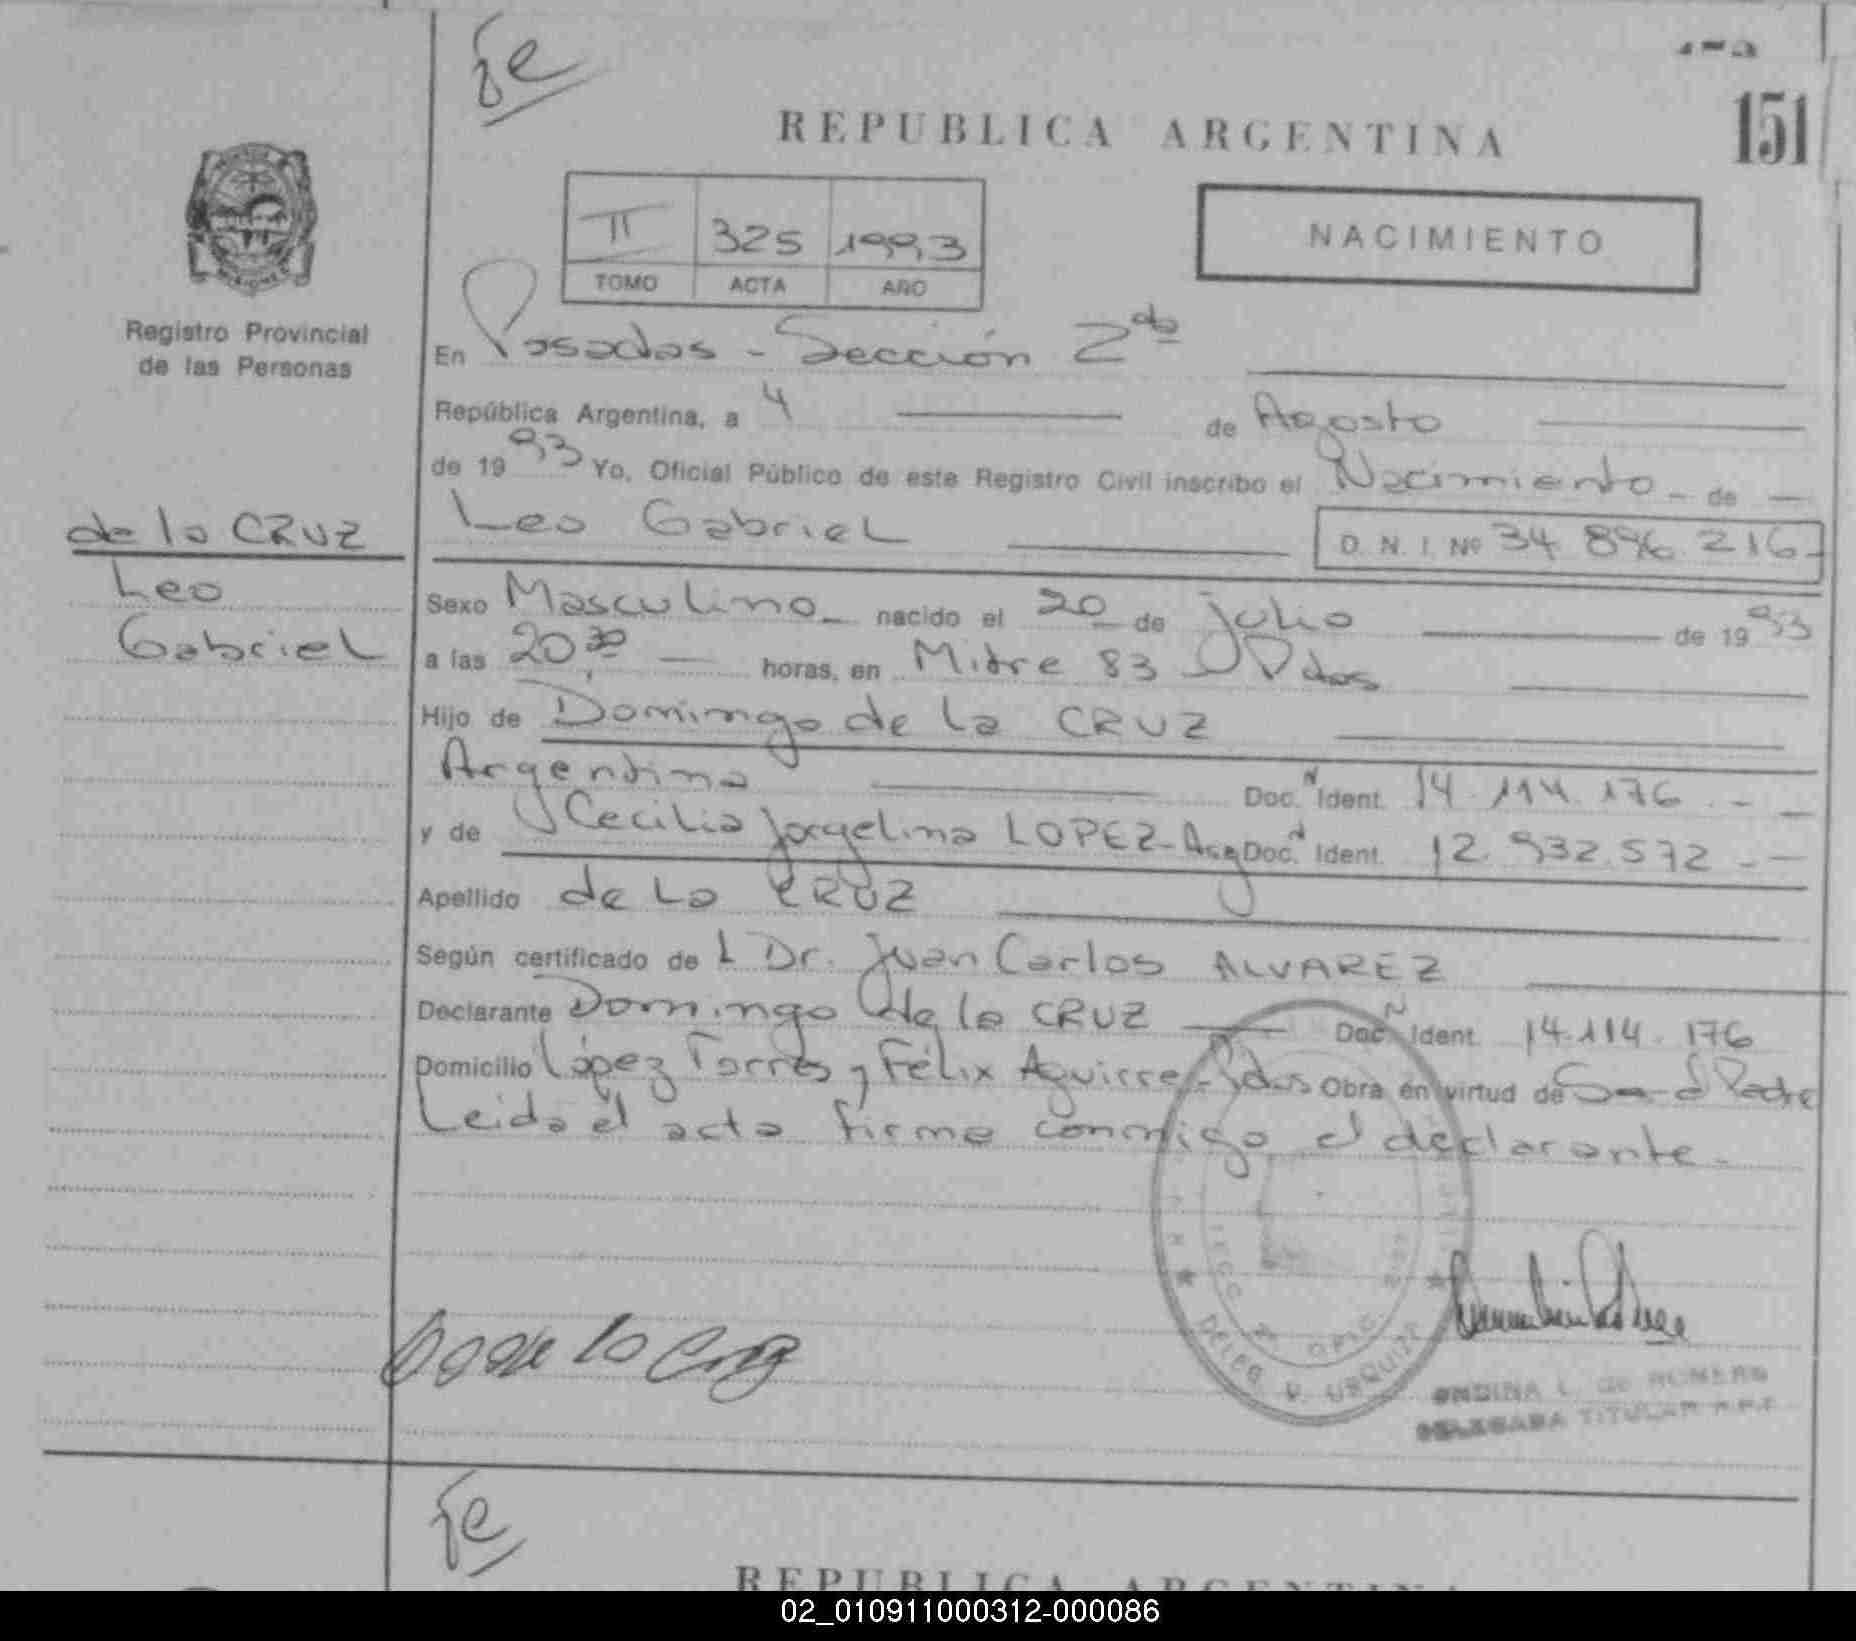 151
REPUBLICA ARGENTINA
NACIMIENTO
II 325 1993
TOMO ACTA AÑO
Registro Provincial
de las Personas
En Posadas - Sección 2da
República Argentina, a 4 de Agosto
de 1993 Yo, Oficial Público de este Registro Civil inscribo el Nacimiento - de -
de la CRUZ
Leo
Gabriel
Leo Gabriel D. N. I. Nº 34.896.216-
Sexo Masculino nacido el 20 de julio de 1993
a las 20:30 horas, en Mitre 83 Pdas
Hijo de Domingo de la CRUZ
Argentino Doc. N Ident. 14.114.176.-
y de Cecilia Jorgelina LOPEZ-Arg Doc. N Ident. 12.932.572.-
Apellido de La CRUZ
Según certificado de L Dr. Juan Carlos ALVAREZ
Declarante Domingo de la CRUZ Doc. N Ident. 14.114.176
Domicilio López Torres y Félix Aguirre-Pdas Obra en virtud de Ser el Padre
Leida el acta firma conmigo el declarante.
DELEG. V. URQUIZA
SECC. 2ª OFIC.
ONDINA L. de ROMERO
DELEGADA TITULAR R.P.P.
REPUBLICA ARGENTINA
02_010911000312-000086